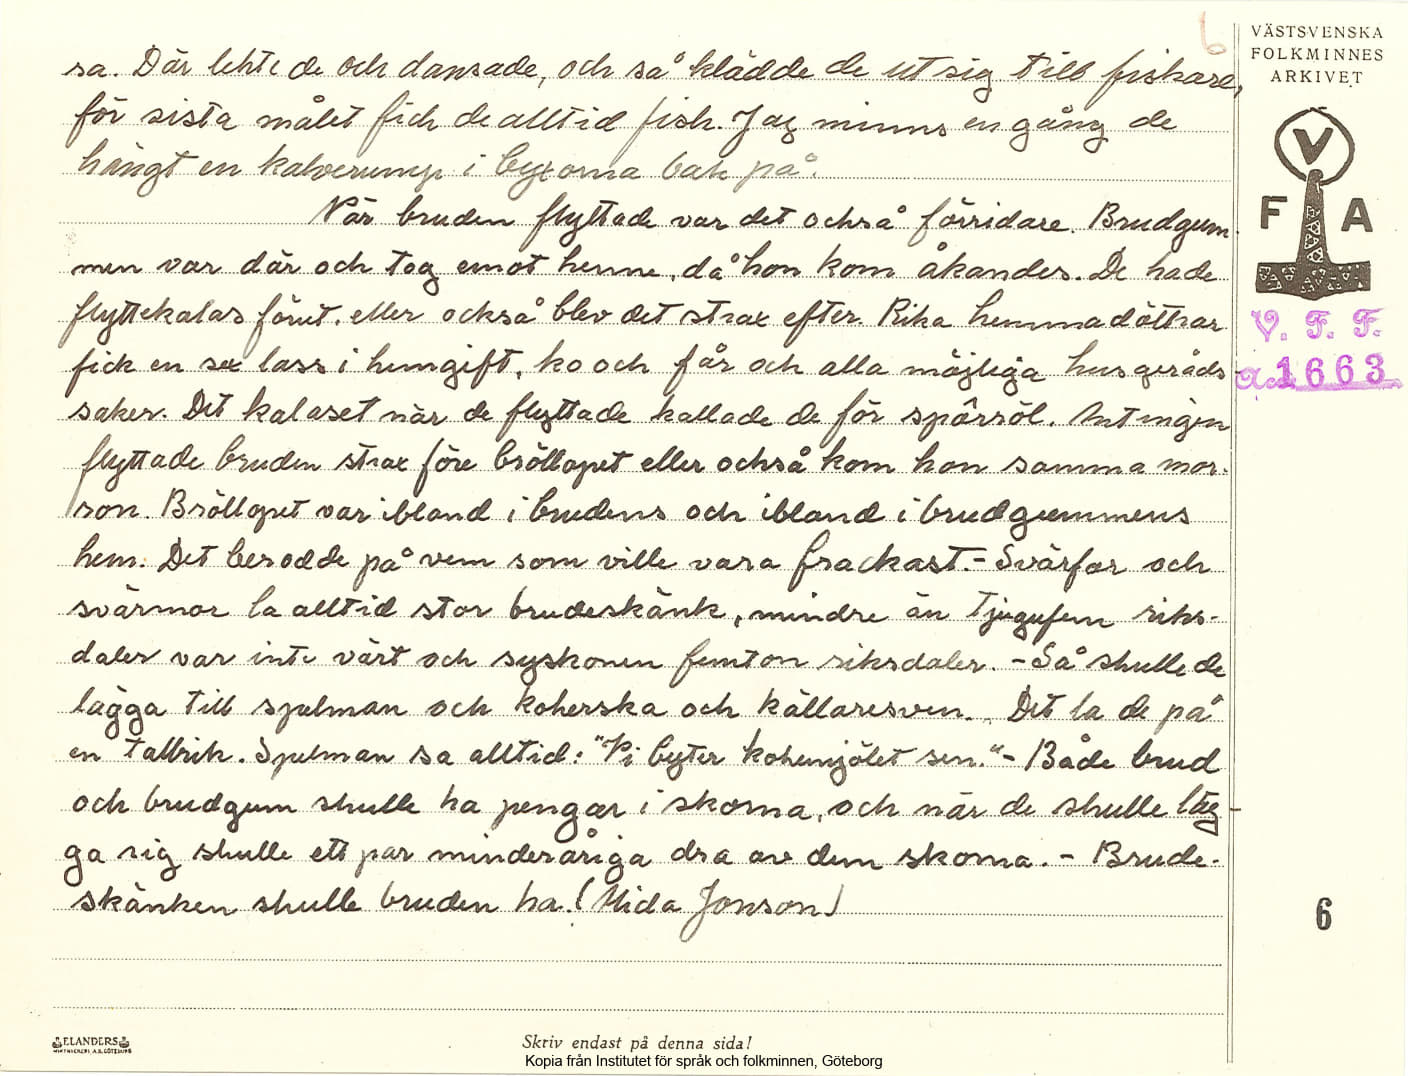 6
VÄSTSVENSKA
FOLKMINNES
ARKIVET
sa. Där lekte de och dansade, och så klädde de ut sig till fiskare,
för sista målet fick de alltid fisk. Jag minns en gång de
hängt en kalverump i byxorna bak på.
När bruden flyttade var det också förridare. Brudgum
men var där och tog emot henne, då hon kom åkandes. De hade
flyttekalas förut, eller också blev det strax efter. Rika hemmadöttrar
fick en sex lass i hemgift, ko och får och alla möjliga husgeråds-
saker. Det kalaset när de flyttade kallade de för spörsöl. Antingen
flyttade bruden strax före bröllopet eller också kom hon samma mor-
ron. Bröllopet var ibland i brudens och ibland i brudgummens
hem. Det berodde på vem som ville vara frackast. - Svärfar och
svärmor la alltid stor brudeskänk, mindre än tjugufem riks-
daler var inte värt och syskonen femton riksdaler. - Så skulle de
lägga till spelman och kokerska och källaresven. Det la de på
en tallrik. Spelman sa alltid: "Vi byter kohemjölet sen." - Både brud
och brudgum skulle ha pengar i skorna, och när de skulle läg-
ga sig skulle ett par minderåriga dra av dem skorna. - Brude-
skänken skulle bruden ha. (Alida Jonson)
V
F A
V. F. F.
Acc. 1663
6
ELANDERS
Skriv endast på denna sida!
Kopia från Institutet för språk och folkminnen, Göteborg